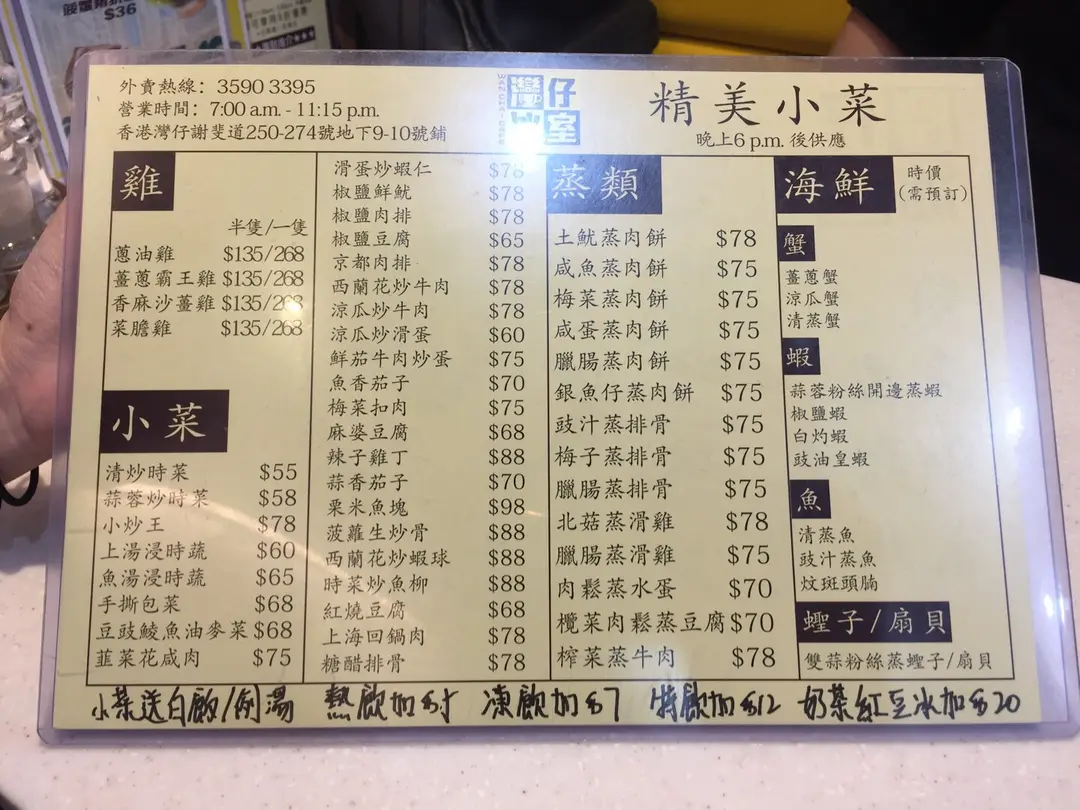 $36
外賣熱線：3590 3395
營業時間：7:00 a.m. - 11:15 p.m.
香港灣仔謝斐道250-274號地下9-10號鋪
灣仔
室
精美小菜
晚上6 p.m. 後供應
雞
半隻/一隻
蔥油雞 $135/268
薑蔥霸王雞 $135/268
香麻沙薑雞 $135/268
菜膽雞 $135/268
小菜
清炒時菜 $55
蒜蓉炒時菜 $58
小炒王 $78
上湯浸時蔬 $60
魚湯浸時蔬 $65
手撕包菜 $68
豆豉鯪魚油麥菜 $68
韮菜花咸肉 $75
滑蛋炒蝦仁 $78
椒鹽鮮魷 $78
椒鹽肉排 $78
椒鹽豆腐 $65
京都肉排 $78
西蘭花炒牛肉 $78
涼瓜炒牛肉 $78
涼瓜炒滑蛋 $60
鮮茄牛肉炒蛋 $75
魚香茄子 $70
梅菜扣肉 $75
麻婆豆腐 $68
辣子雞丁 $88
蒜香茄子 $70
粟米魚塊 $98
菠蘿生炒骨 $88
西蘭花炒蝦球 $88
時菜炒魚柳 $88
紅燒豆腐 $68
上海回鍋肉 $78
糖醋排骨 $78
蒸類
土魷蒸肉餅 $78
咸魚蒸肉餅 $75
梅菜蒸肉餅 $75
咸蛋蒸肉餅 $75
臘腸蒸肉餅 $75
銀魚仔蒸肉餅 $75
豉汁蒸排骨 $75
梅子蒸排骨 $75
臘腸蒸排骨 $75
北菇蒸滑雞 $78
臘腸蒸滑雞 $75
肉鬆蒸水蛋 $70
欖菜肉鬆蒸豆腐 $70
榨菜蒸牛肉 $78
海鮮 時價
（需預訂）
蟹
薑蔥蟹
涼瓜蟹
清蒸蟹
蝦
蒜蓉粉絲開邊蒸蝦
椒鹽蝦
白灼蝦
豉油皇蝦
魚
清蒸魚
豉汁蒸魚
炆斑頭腩
蟶子/扇貝
雙蒜粉絲蒸蟶子/扇貝
小菜送白飯/例湯 熱飲加$5 凍飲加$7 特飲加$12 奶茶紅豆冰加$20